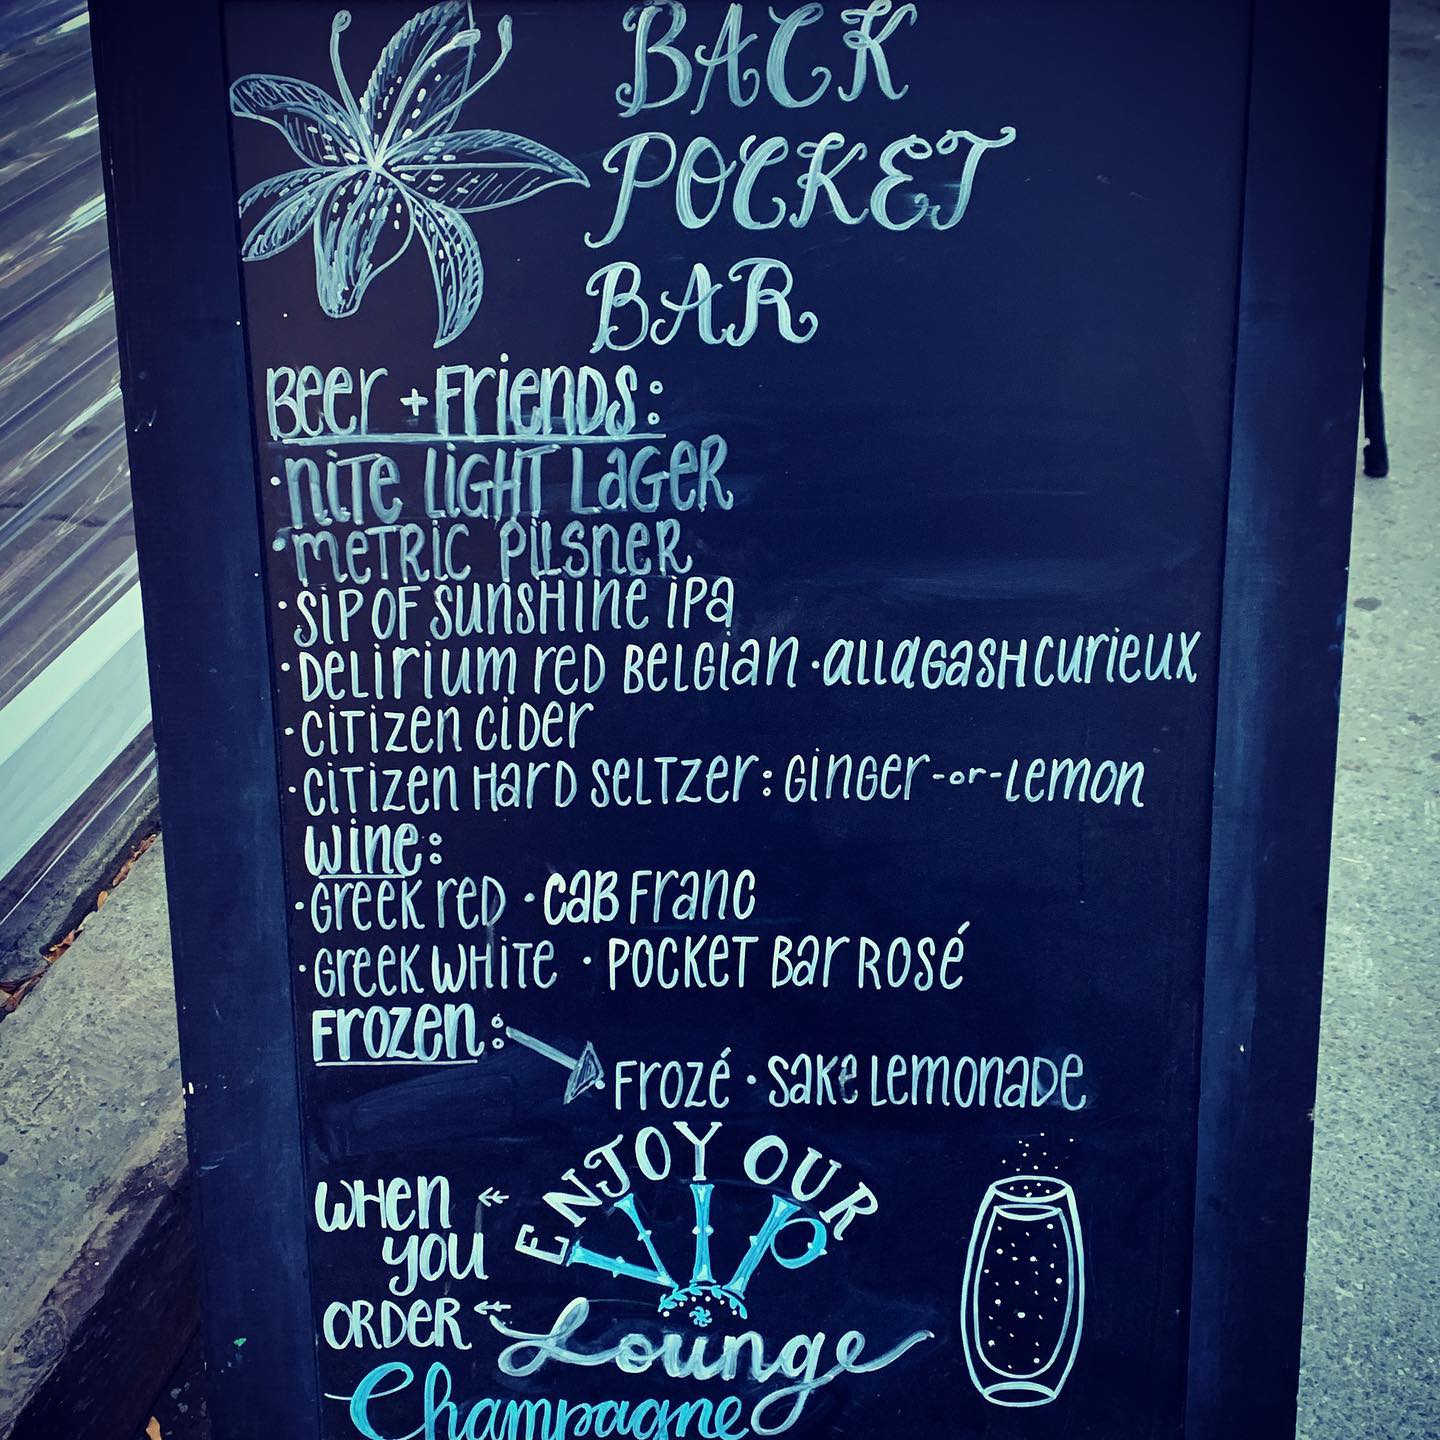 BACK
POCKET
BAR
Beer + Friends:
· nite light lager
· metric pilsner
· sip of sunshine ipa
· Delirium red Belgian · allagash curieux
· citizen cider
· citizen Hard seltzer: ginger -or- lemon
wine:
· Greek red · cab franc
· Greek white · Pocket Bar Rosé
Frozen:
· Frozé · sake lemonade
ENJOY OUR
Lounge
when
you
order
Champagne